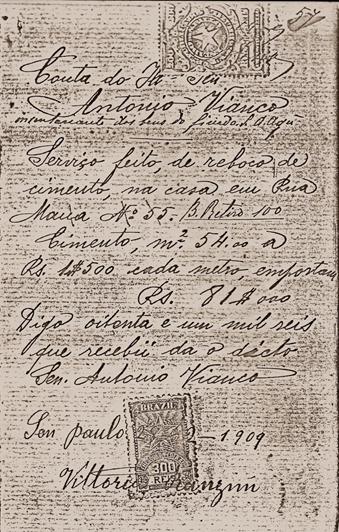 54
Conta do Il.mo Sen
Antonio Vianco
dos bens do
Serviço feito, de reboco de
cimento, na casa em Rua
Maua Nº 55. B. Retiro 100
Cimento, m² 54.00 a
Rs. 1$500 cada metro, emportam
Rs. 81$000
Digo oitenta e um mil reis
que recebii da o dicto
Sen. Antonio Vianco
Sen paulo 1909
BRAZIL
300
REIS
Vittorio